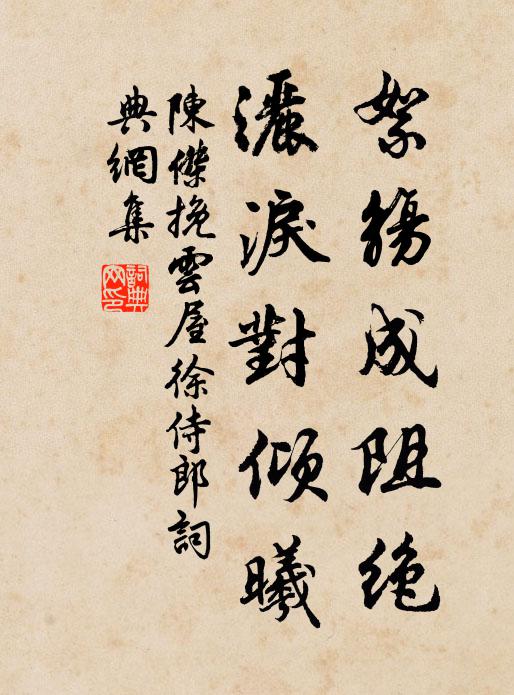 絮觴成阻絶
灑淚對傾曦
陳傑挽雲屋徐侍郎詞
典網集
詞典
网印